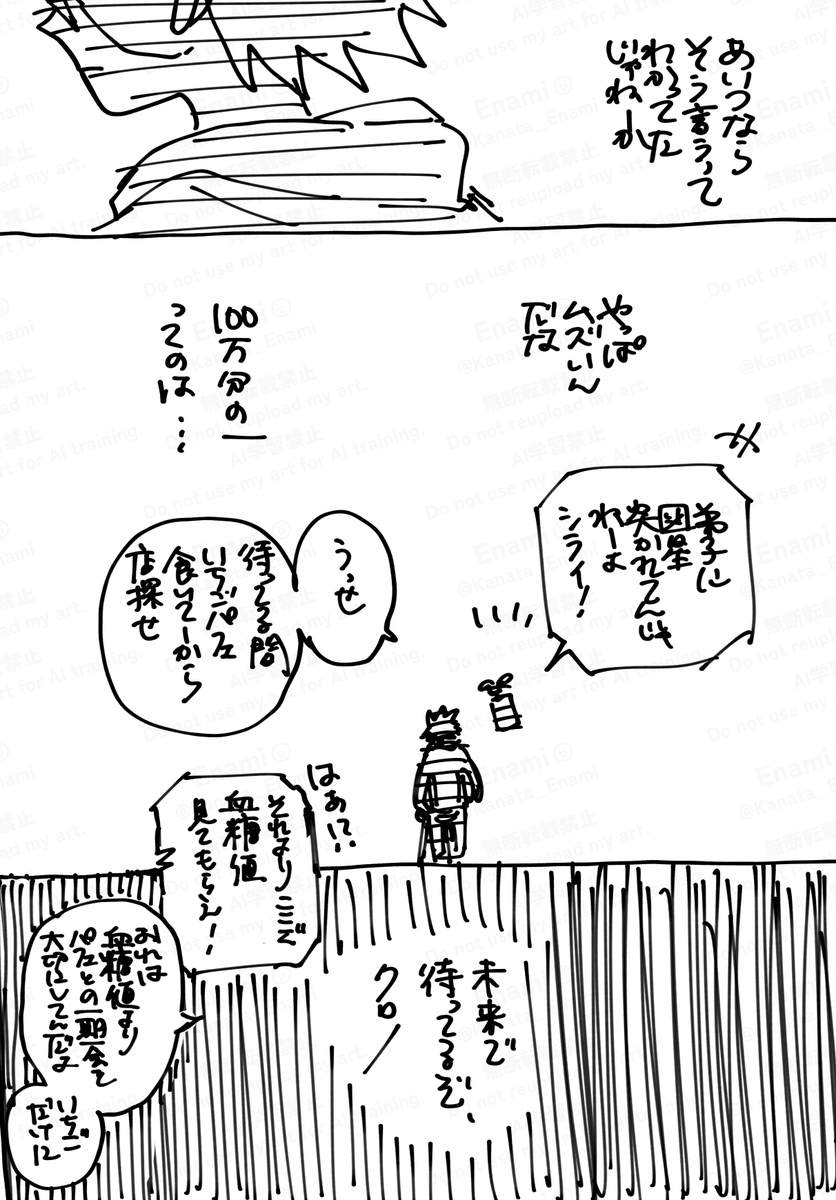 あいつなら
そう言うって
わかってた
じゃねーか
やっぱ
ムズいん
だな
100万分の一
ってのは…
弟子に
図星
突かれてんじゃ
ねーよ
シライ！
うっせ
待ってる間
いちごパフェ
食いてーから
店探せ
はあ！？
それよりここで
血糖値
見てもらえ！
おれは
血糖値より
パフェとの一期一会を
大切にしてんだよ
いちご
だけに
未来で
待ってるぞ、
クロノ
Enami
@Kanata_Enami
無断転載禁止
Do not reupload my art.
AI学習禁止
Do not use my art for AI training.